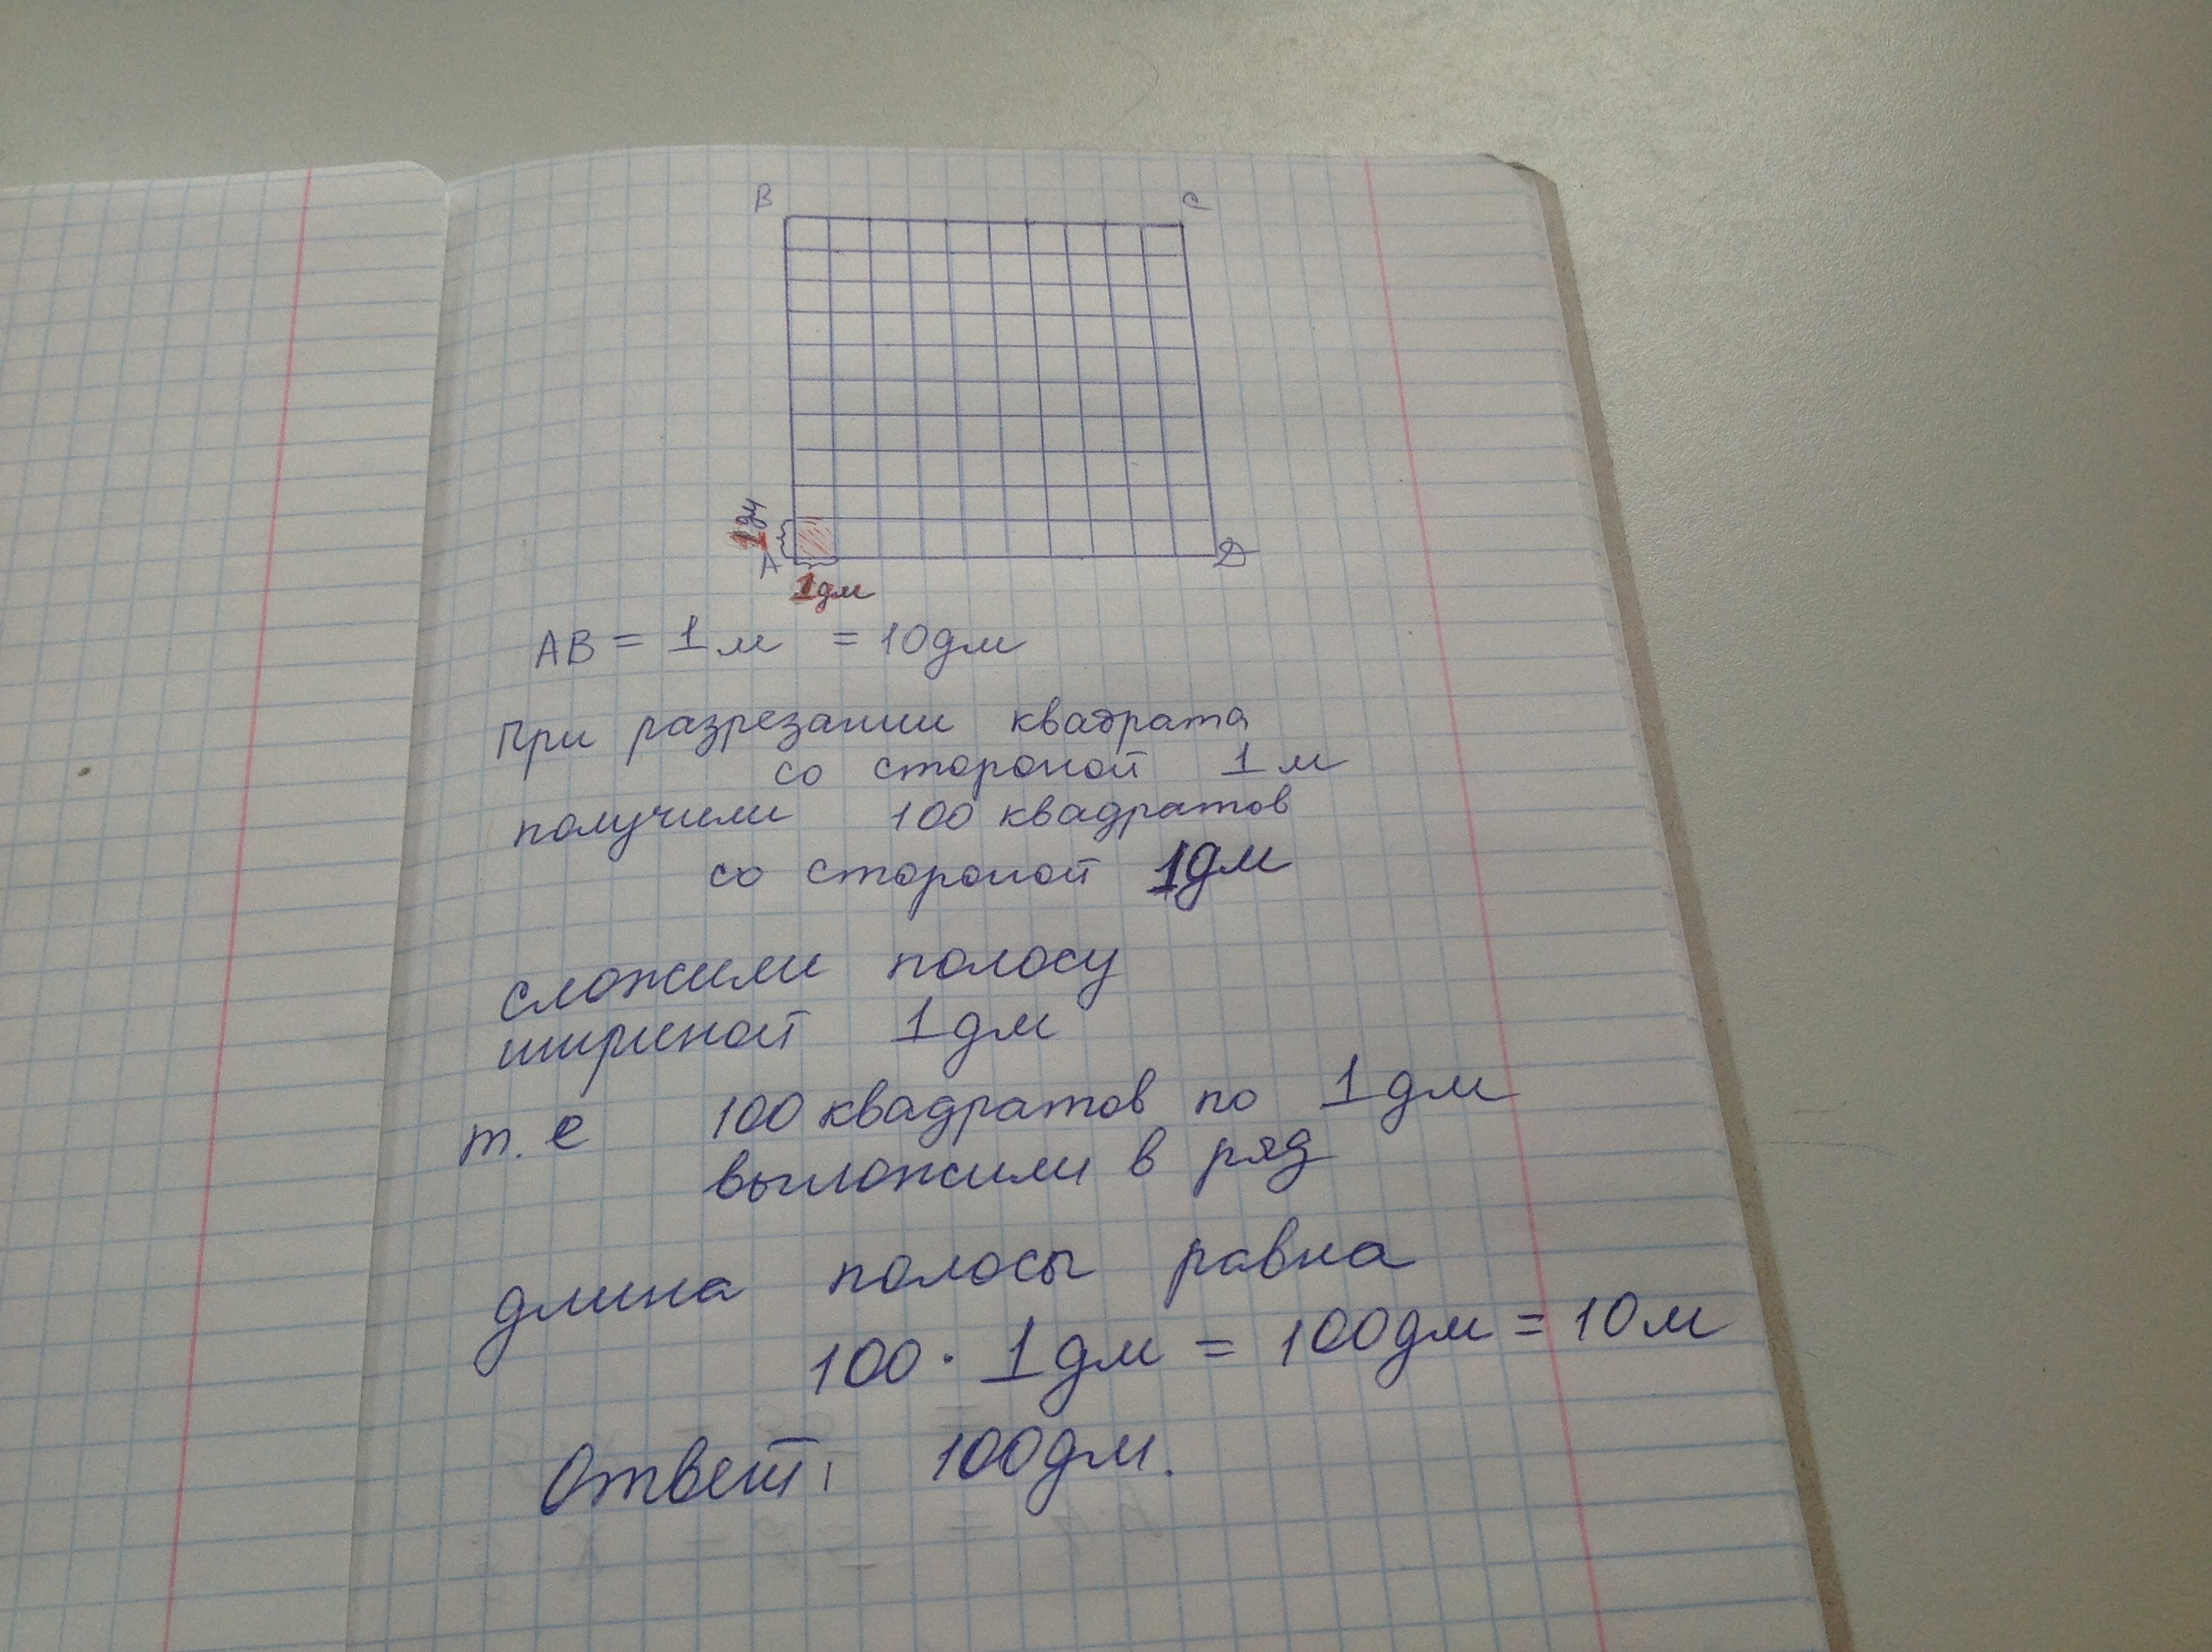 В С
1дм
А D
1дм
АВ = 1м = 10дм
При разрезании квадрата
со стороной 1м
получили 100 квадратов
со стороной 1дм
сложили полосу
шириной 1дм
т. е 100 квадратов по 1дм
выложили в ряд
длина полосы равна
100 · 1дм = 100дм = 10м
Ответ: 100дм.